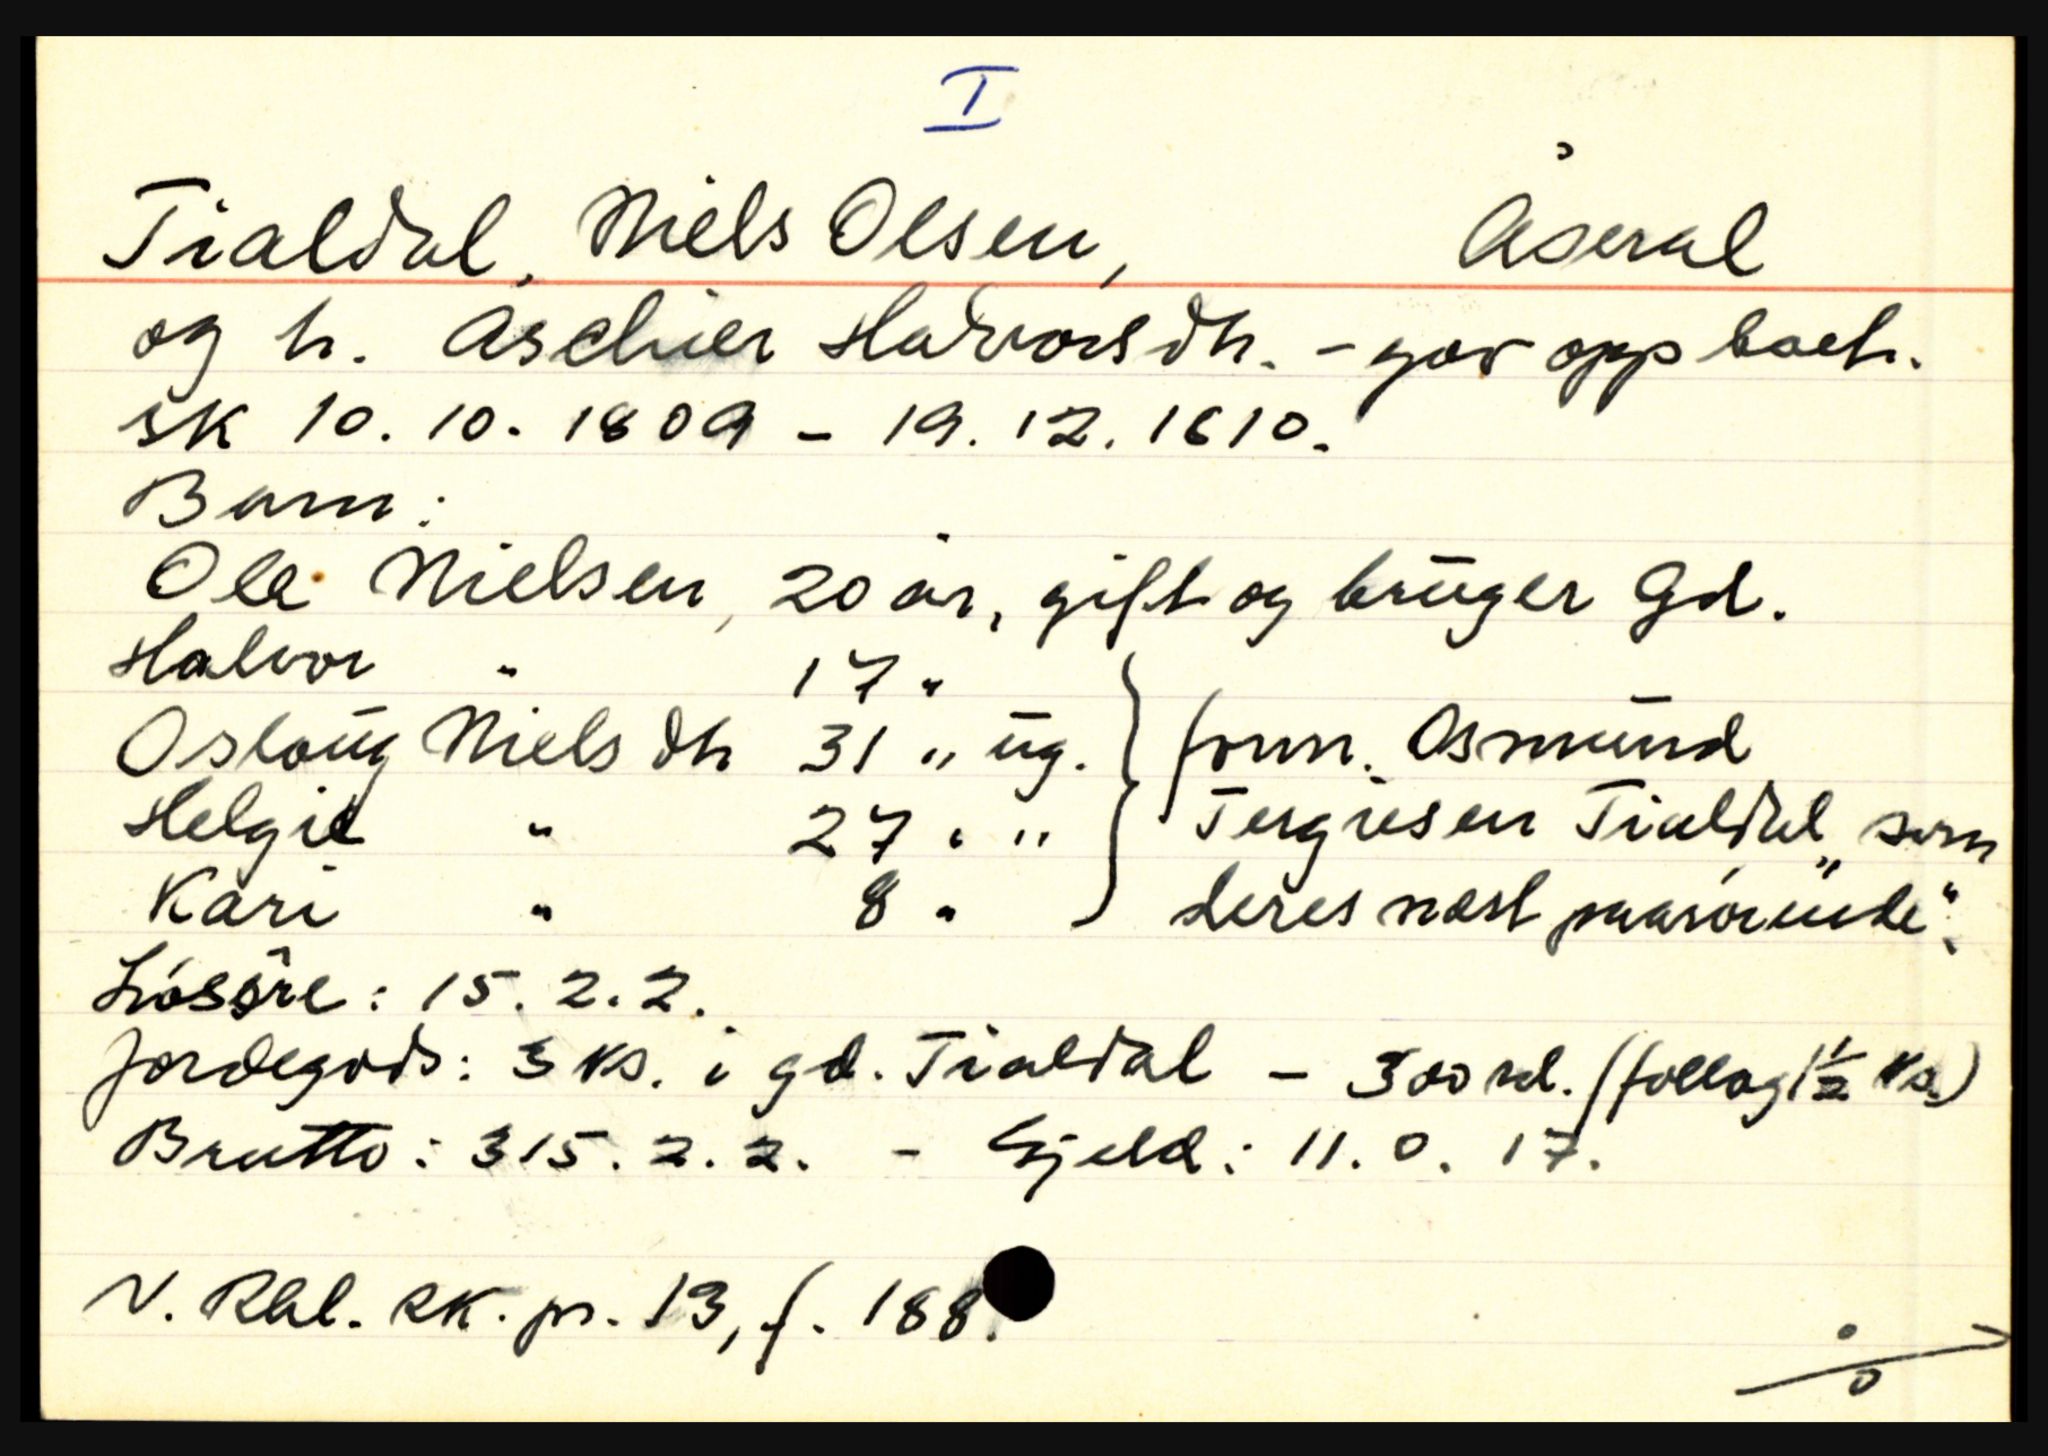 I
Tialdal, Niels Olsen, Åseral
og h. Aschier Halvorsdh. - gav opp boet.
sk 10.10.1809 - 19.12.1810.
Barn:
Ole Nielsen, 20 år, gift og brüger Gd.
Halvor " 17 "
Osloüg Nielsdh 31 " üg.
Helgie " 27 " "
Kari " 8 "
form. Osmünd
Tergiesen Tialdal „som
deres næst paarörende".
Lösöre: 15.2.2.
Jordegods: 3 ks. i gd. Tialdal - 300 rd. (føllog 1½ ks.)
Brutto: 315.2.2. - Gjeld: 11.0.17.
N. Rbl. sk. pr. 13, f. 188.